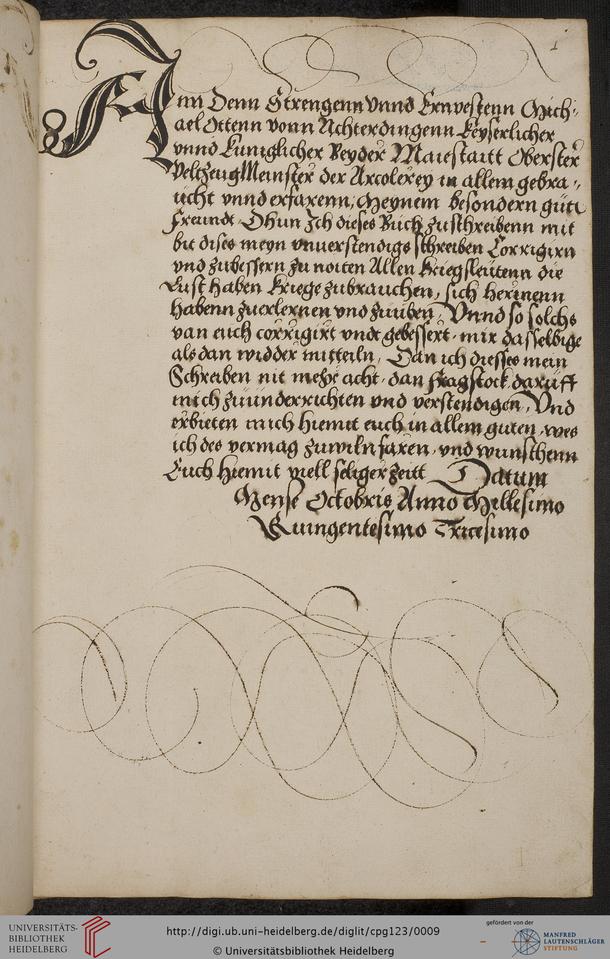 1
Ann Denn Strengenn vnnd Ernvestenn Mich-
ael Ottenn vonn Achterdingenn Keyserlicher
vnnd Kuniglicher Beyder Maiestaitt Oberster
Veltzeug Meinster der Arcolerey in allem gebra-
ucht vnnd erfarenn, Meynem besondern güti
Freundt. Thun Ich dieses Buch zuschreibenn mit
bit dises meyn vnuerstendigs schreiben Corrigirn
vnd zubessern zu noiten Allen Kriegsleütenn die
Lust haben Kriege zubrauchen, sich herinenn
habenn zuerlernen vnd zuüben, Vnnd so solchs
van euch corrigirt vndt gebessert, mir dasselbige
als dan widder mitteiln, Dan ich diesses mein
Schreiben nit mehr acht, dan Fragstock darüff
mich züünderrichten vnd verstendigen, Vnd
erbieten mich hiemit euch in allem guten, wes
ich des vermag zuwiln faren, vnd wunschenn
Euch hiemit viell seliger zeitt Datum
Mense Octobris Anno Millesimo
Quingentesimo Tricesimo
UNIVERSITÄTS-
BIBLIOTHEK
HEIDELBERG
http://digi.ub.uni-heidelberg.de/diglit/cpg123/0009
© Universitätsbibliothek Heidelberg
gefördert von der
MANFRED
LAUTENSCHLÄGER
STIFTUNG